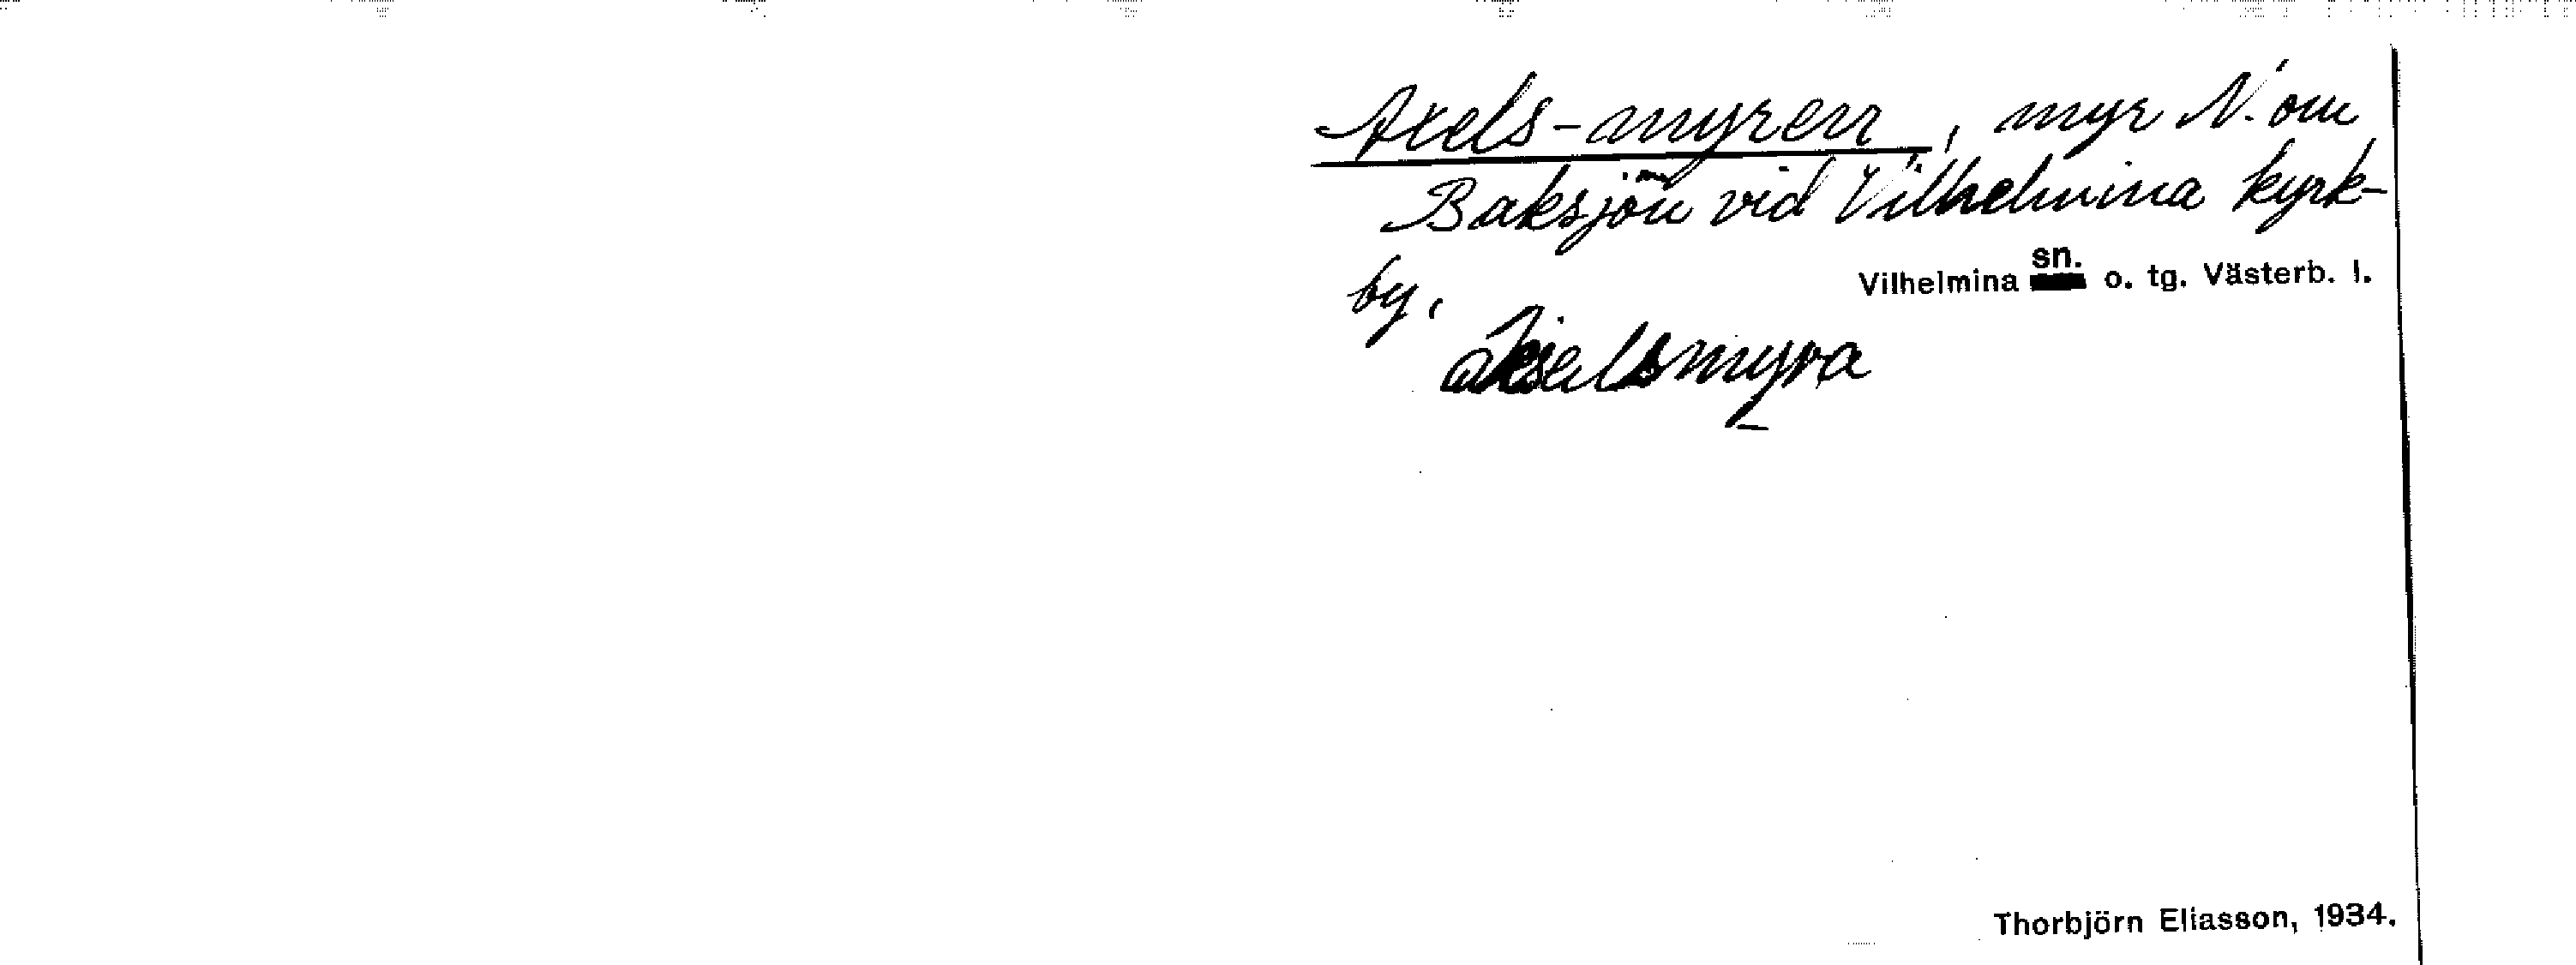 Axels-myren, myr N. om
Baksjön vid Vilhelmina kyrk-
by.
Vilhelmina sn. o. tg. Västerb. l.
akselsmyra
Thorbjörn Eliasson, 1934.